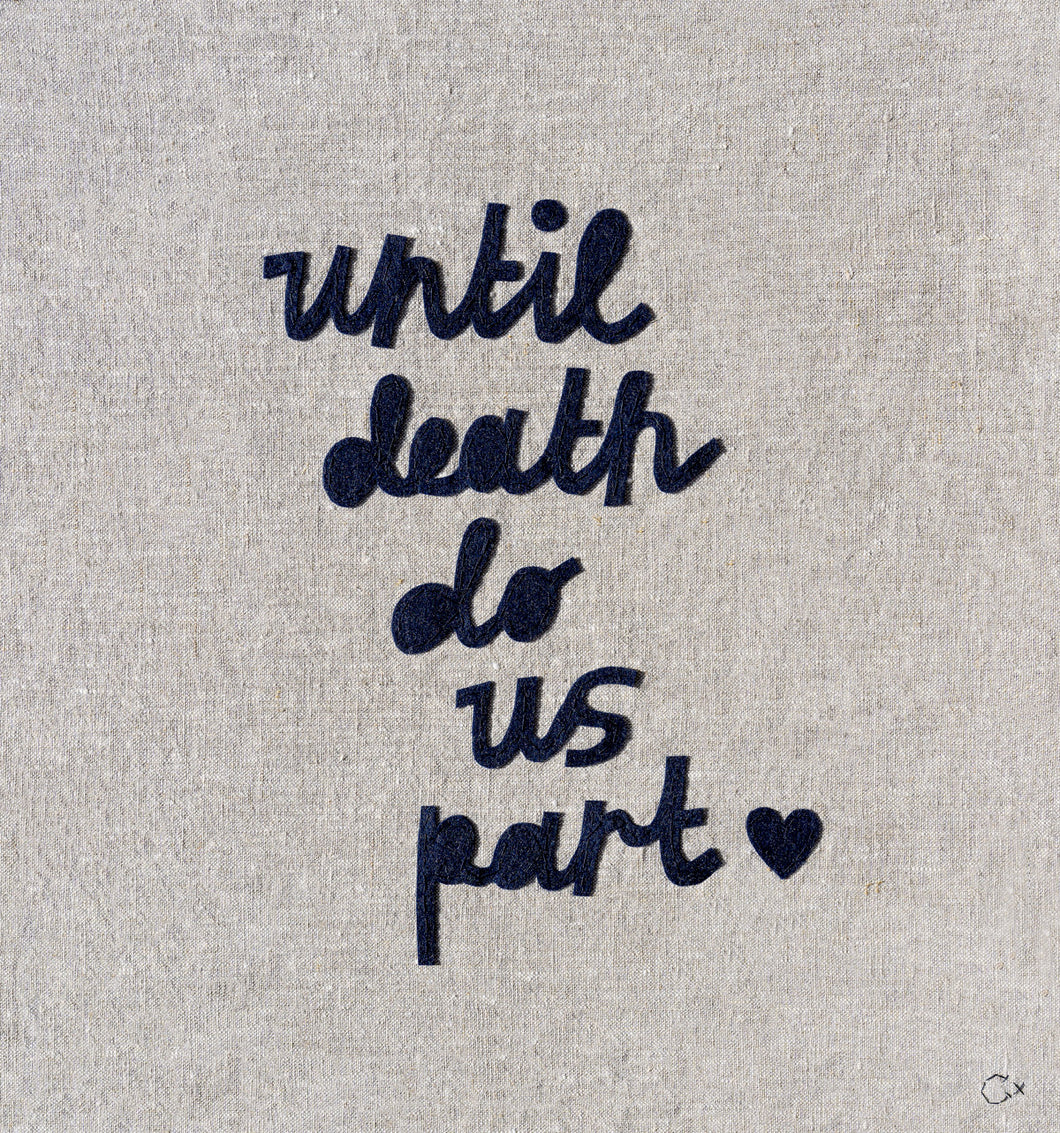 until
death
do
us
part ♥